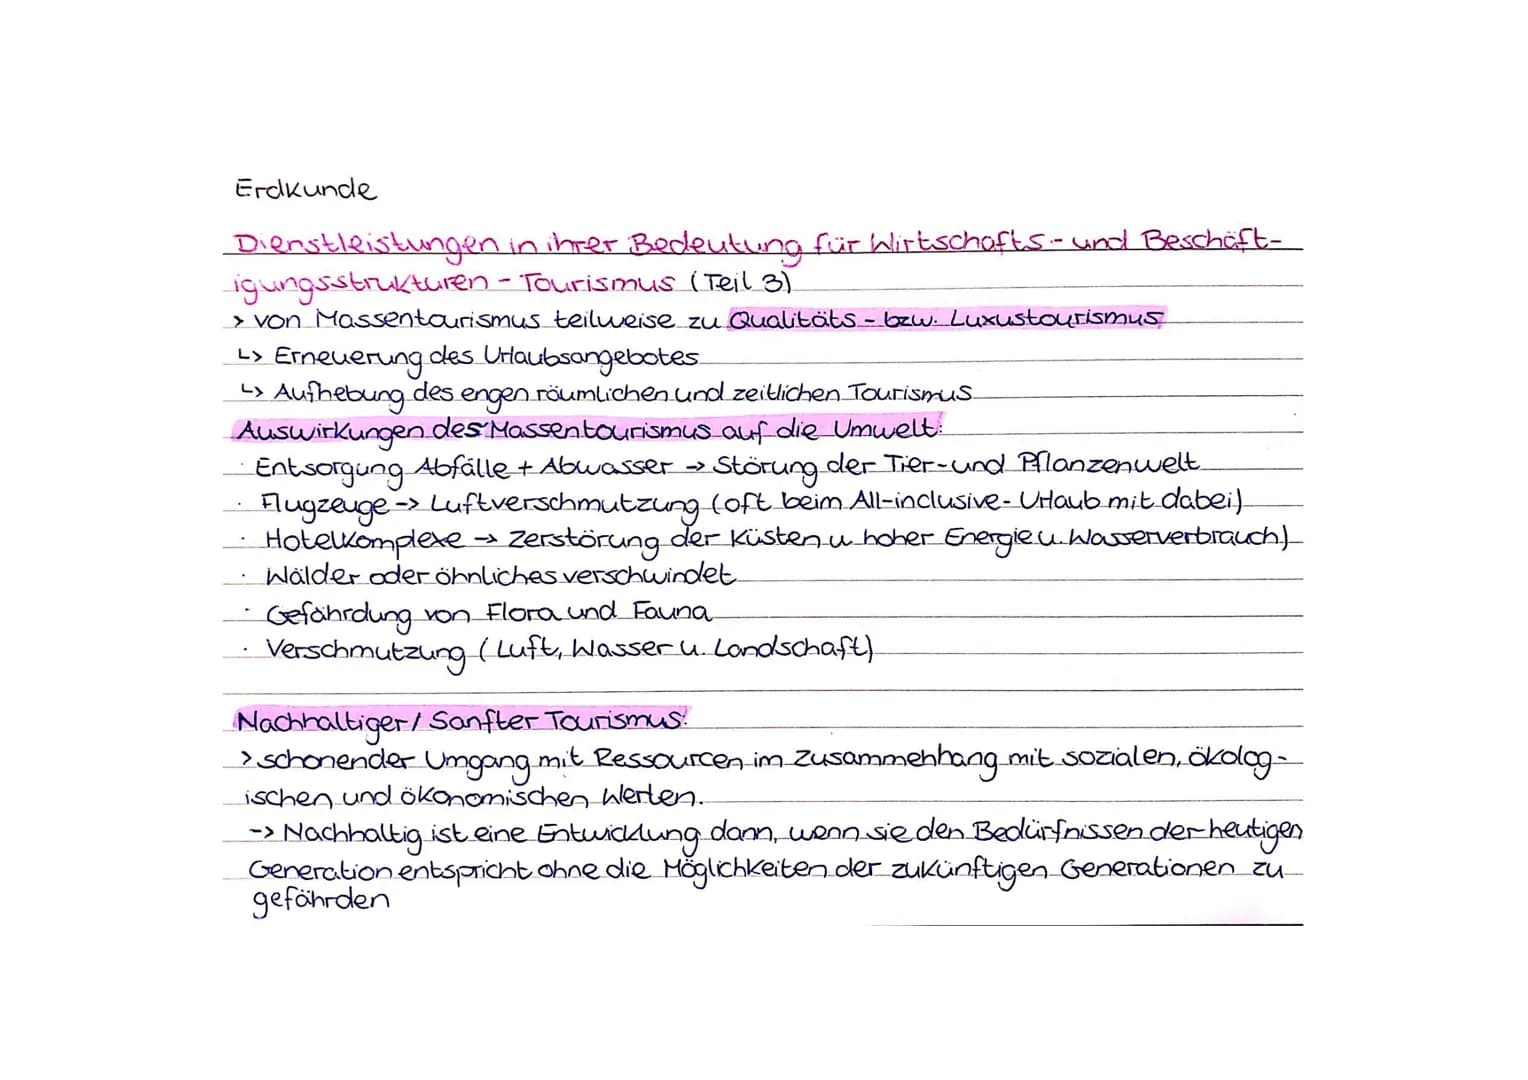 Erdkunde
Dienstleistungen in ihrer Bedeutung für Wirtschafts- und Beschäft-
igungsstrukturen - Tourismus (Teil 3)
> von Massentourismus teilweise zu Qualitäts - bzw. Luxustourismus
↳ Erneuerung des Urlaubsangebotes
↳ Aufhebung des engen räumlichen und zeitlichen Tourismus
Auswirkungen des Massentourismus auf die Umwelt:
· Entsorgung Abfälle + Abwasser → Störung der Tier- und Pflanzenwelt
· Flugzeuge -> Luftverschmutzung (oft beim All-inclusive-Urlaub mit dabei)
· Hotelkomplexe → Zerstörung der Küsten u hoher Energie u. Wasserverbrauch)
· Wälder oder ähnliches verschwindet
· Gefährdung von Flora und Fauna
· Verschmutzung (Luft, Wasser u. Landschaft)
Nachhaltiger / Sanfter Tourismus:
> schonender Umgang mit Ressourcen im Zusammenhang mit sozialen, ökolog-
ischen und ökonomischen Werten.
-> Nachhaltig ist eine Entwicklung dann, wenn sie den Bedürfnissen der heutigen
Generation entspricht ohne die Möglichkeiten der zukünftigen Generationen zu
gefährden